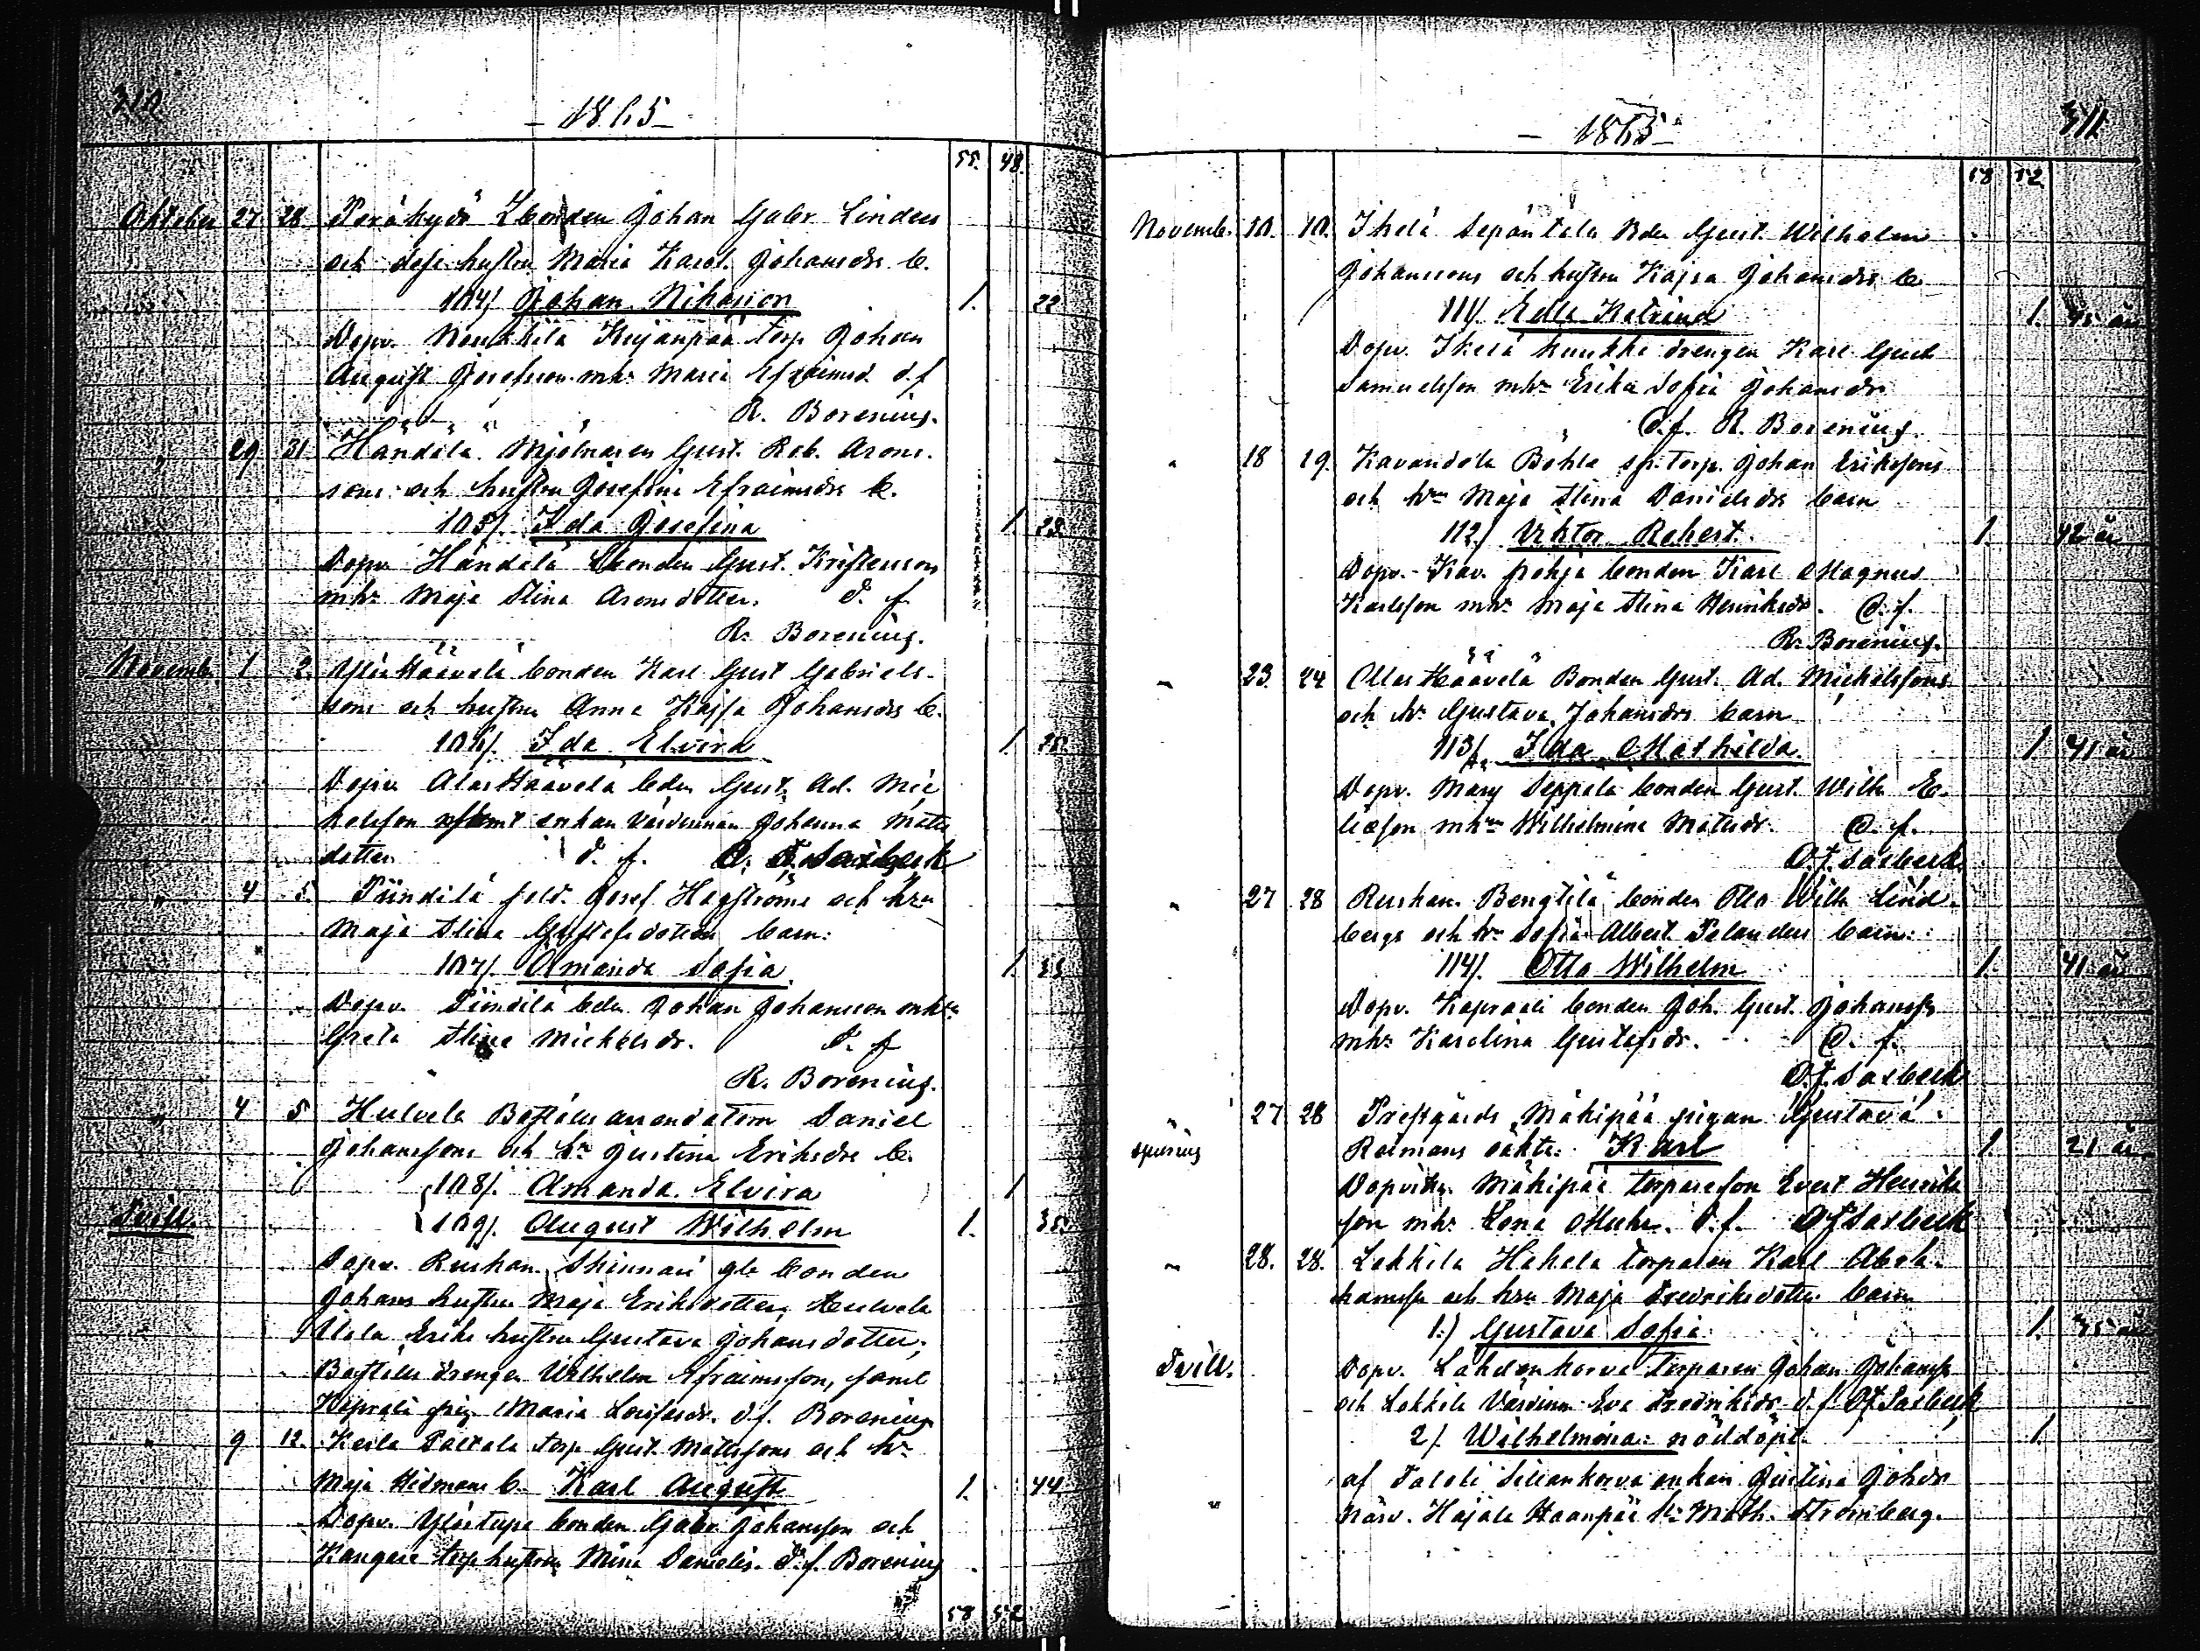 310
- 1865 -
55. 48.
Oktober 27 28 Peräkylä Lbonden Johan Gabr. Linders
och dess hustru Maria Karol. Johansdr b.
104/. Johan Nikanon 1. 22
Dopv. Noukkila Kujanpää torp. Johan
August Josefsson mhr Maria Efraimsd. d. f.
R. Borenius.
" 29 31 Händälä Mjölnaren Gust. Rob. Arons-
sons och hustru Josefina Efraimsdr b.
105/. Ida Josefina 1. 29
Dopv. Händälä bonden Gust. Kristensson
mhr Maja Stina Aronsdotter. d. f.
R. Borenius.
Novemb. 1 2. Ylös Häävälä bonden Karl Gust Gabriels-
sons och hustru Anna Kajsa Johansdr b.
106/. Ida Elvira 1. 35.
Dopv. Alas Häävelä bden Gust. Ad. Mic
helsson samt enkan Värdinnan Johanna Matts
dotter d. f. O. F. Saxbeck
" 4 5. Piindilä sold. Josef Hagströms och hru
Maja Stina Gustafsdotters barn:
107/. Amanda Sofia. 1. 33
Dopv. Piindilä bden Johan Johansson mhr
Greta Stina Mickelsdr. d. f
R. Borenius.
" 4 5 Hulvela Boställes arrendatorn Daniel
Johanssons och hr Justina Eriksdrs b.
108/. Amanda Elvira 1
Tvill. 109/. August Wilhelm 1. 35.
Dopv. Ruskon Skinnari gle bonden
Johans hustru Maja Eriksdotter, Hulvela
Ulola Eriks hustru Gustava Johansdotter,
Boställs drengen Wilhelm Efraimsson, samt
Koprali pig. Maria Josefsdr. d f. Borenius
" 9 12. Keila Paltala torp. Gust. Mattssons och hr
Maja Hidmans b. Karl August 1. 44
Dopv. Ylöstupa bonden Gabr Johansson och
Kangare torp hustru Mina Danielsd. d. f. Borenius
58 52
311
- 1865 -
58 52
Novemb. 10. 10. Ihelä Sepäntälä Bdn Gust. Wilhelm
Johanssons och hustru Kajsa Johansdrs b
111/. Edla Katrina 1. 45 år
Dopv. Ikelä Kuukka drengen Karl Gust
Samuelsson mhr Erika Sofia Johansdr
d. f. R. Borenius.
" 18 19. Kavandola Böhla sp. torp. Johan Erikssons
och hru Maja Stina Danielsdrs barn
112./ Viktor Robert. 1. 42 år
Dopv. Kav. Pohja bonden Karl Magnus
Karlsson mhr Maja Stina Henriksdr. d. f.
R. Borenius.
" 23. 24 Ollas Häävelä Bonden Gust. Ad. Michelssons
och hr Gustava Johansdrs barn
113/. Ida Mathilda. 1. 41 år
Dopv. Masy Seppälä bonden Gust. Wilh E-
liasson mhru Wilhelmina Matsdr. d. f.
O. F. Saxbeck.
" 27 28 Ruskon Bengtilä bonden Otto Wilh Lind-
bergs och hr Sofia Albert. Palanders barn:
114/. Otto Wilhelm 1. 41 år
Dopv. Koprali bonden Joh. Gust. Johanss.
mhr Karolina Gustafsdr. d. f.
O. F. Saxbeck
" 27 28 Prestgårds Mäkipää pigan Gustava
spuriug Rotmans oäkta: Karl 1. 21 år
Dopvittn. Mäkipää torparsson Evert Henriks
son mhr Lena d. f. O F Saxbeck
" 28. 28. Lekkila Hakela torparen Karl Abra-
hamss och hru Maja Fredriksdotters barn
1.) Gustava Sofia 1. 35 år
Tvill. Dopv. Lahdenkorva torparen Johan Johanss
och Lekkila Värdinn Eva Fredriksdr d. f. O F Saxbeck
2/. Wilhelmina: nöddöpt. 1.
af Taloli Siliankorva enkan Justina Johdr
närv. Hajala Haanpää hr Math. Strömberg.